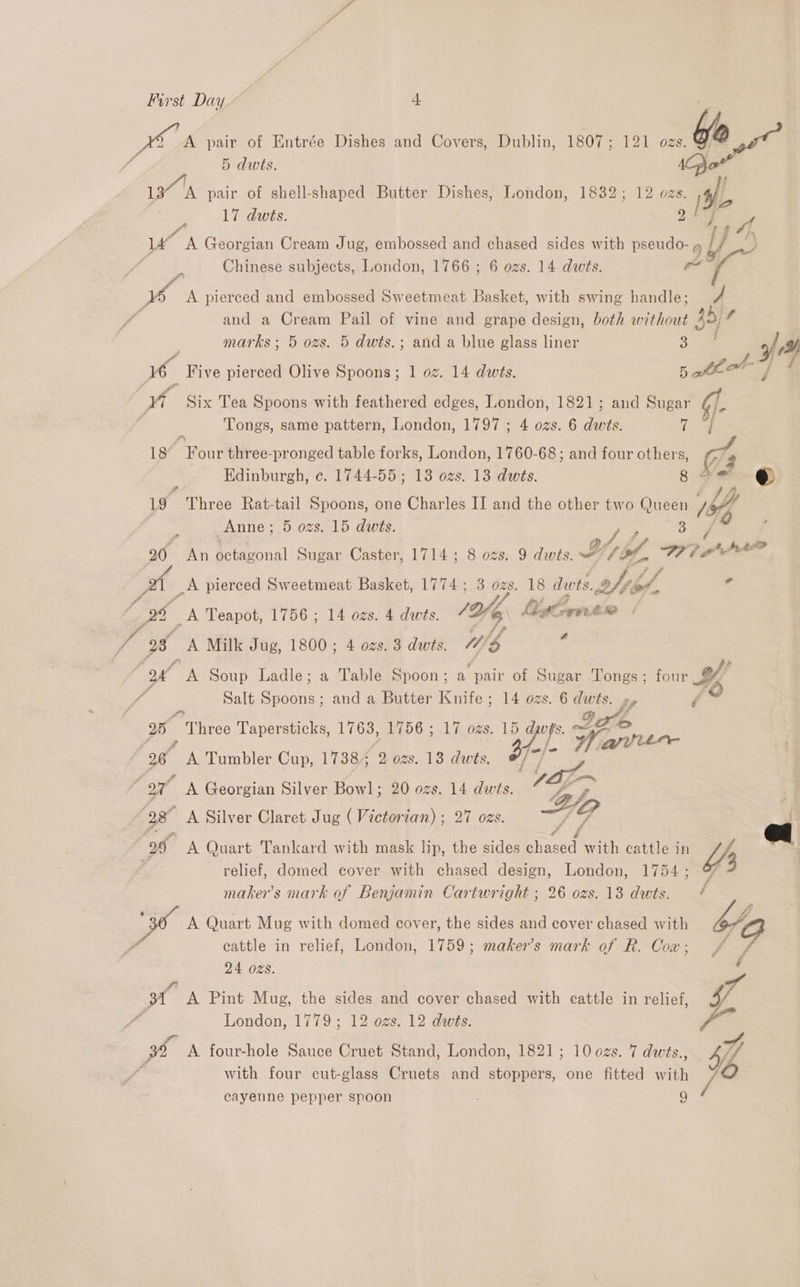 First Day 4
12 A pair of Entrée Dishes and Covers, Dublin, 1807; 121 ozs.
5 dwts. 4
13 A pair of shell-shaped Butter Dishes, London, 1832; 12 ozs.
17 dwts. 2
14 A Georgian Cream Jug, embossed and chased sides with pseudo-
Chinese subjects, London, 1766; 6 ozs. 14 dwts.
15 A pierced and embossed Sweetmeat Basket, with swing handle;
and a Cream Pail of vine and grape design, both without
marks; 5 ozs. 5 dwts.; and a blue glass liner 3
16 Five pierced Olive Spoons; 1 oz. 14 dwts. 5
17 Six Tea Spoons with feathered edges, London, 1821; and Sugar
Tongs, same pattern, London, 1797; 4 ozs. 6 dwts. 7
18 Four three-pronged table forks, London, 1760-68; and four others,
Edinburgh, c. 1744-55; 13 ozs. 13 dwts. 8
19 Three Rat-tail Spoons, one Charles II and the other two Queen
Anne; 5 ozs. 15 dwts. 3
20 An octagonal Sugar Caster, 1714; 8 ozs. 9 dwts.
21 A pierced Sweetmeat Basket, 1774; 3 ozs. 18 dwts.
22 A Teapot, 1756; 14 ozs. 4 dwts.
23 A Milk Jug, 1800; 4 ozs. 3 dwts.
24 A Soup Ladle; a Table Spoon; a pair of Sugar Tongs; four
Salt Spoons; and a Butter Knife; 14 ozs. 6 dwts.
25 Three Tapersticks, 1763, 1756; 17 ozs. 15 dwts.
26 A Tumbler Cup, 1738; 2 ozs. 13 dwts.
27 A Georgian Silver Bowl; 20 ozs. 14 dwts.
28 A Silver Claret Jug (Victorian); 27 ozs.
29 A Quart Tankard with mask lip, the sides chased with cattle in
relief, domed cover with chased design, London, 1754;
maker's mark of Benjamin Cartwright; 26 ozs. 13 dwts.
30 A Quart Mug with domed cover, the sides and cover chased with
cattle in relief, London, 1759; maker's mark of R. Cox;
24 ozs.
31 A Pint Mug, the sides and cover chased with cattle in relief,
London, 1779; 12 ozs. 12 dwts.
32 A four-hole Sauce Cruet Stand, London, 1821; 10 ozs. 7 dwts.,
with four cut-glass Cruets and stoppers, one fitted with
cayenne pepper spoon 9